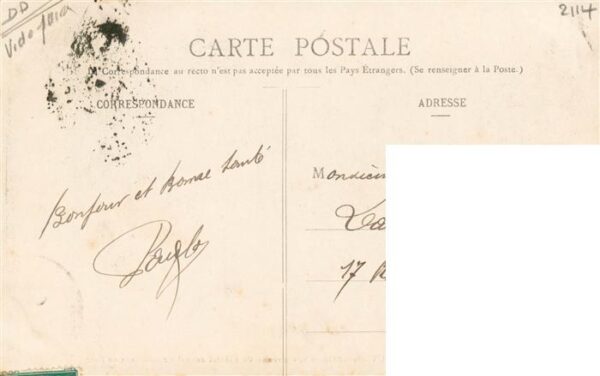 DD
2114
CARTE POSTALE
La Correspondance au recto n'est pas acceptée par tous les Pays Étrangers. (Se renseigner à la Poste.)
CORRESPONDANCE
ADRESSE
Bonjour et bonne santé
Monsieur
17